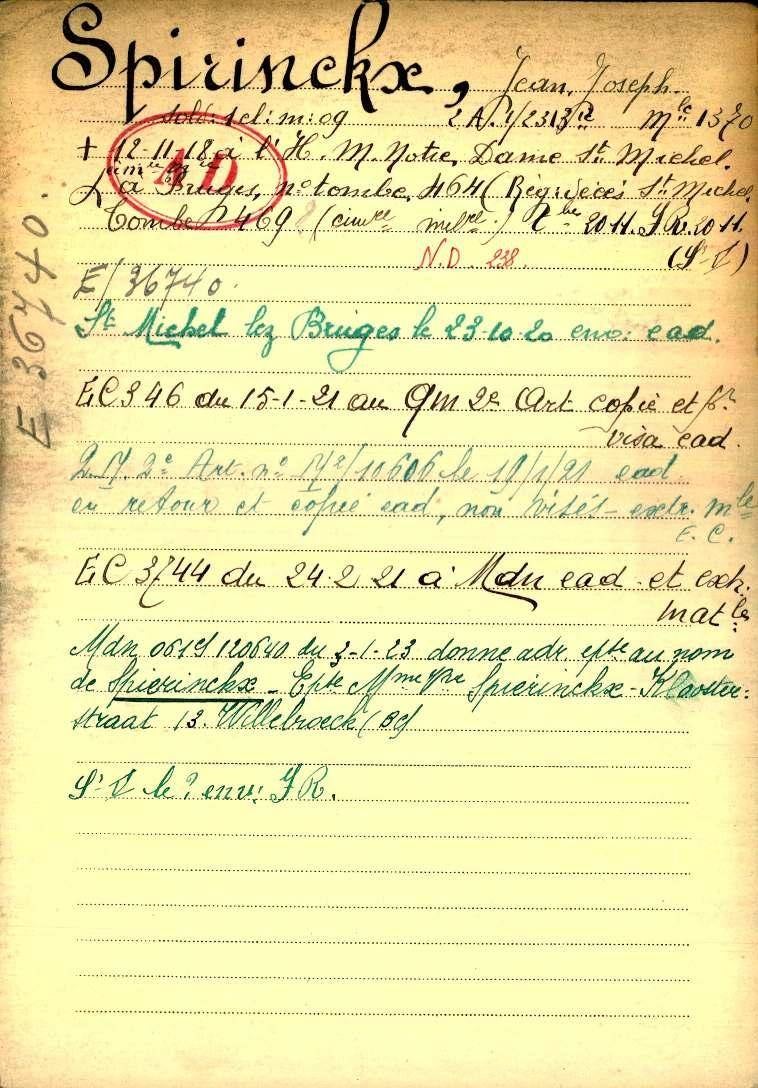 Spirinckx, Jean Joseph.
Sold: 1 cl: m: 09 2 A. Mle 1370
+ 12-11-18 à l'H. M. Notre Dame St Michel.
AD
à Bruges, no tombe 464 (Rég: décès St Michel
Tombe 469 20 H. J R. 20 H.
N.D. 238.
E/36740.
E 36740.
St Michel lez Bruges le 23-10-20 env: ead.
EC 346 du 15-1-21 au Qm 2e Art copié et pr
visa ead.
2e Art. no /10606 le 19/1/21 ead
en retour et copié ead, non visés - extr. mle
E. C.
EC 3744 du 24-2 21 à Mdn ead et extr.
matles
Mdn 120640 du 3-1-23 donne adr epse au nom
de Spierinckx - Epse Mme Vve Spierinckx - Klooster:
straat 13. Willebroeck (BC)
le ? env: J R.